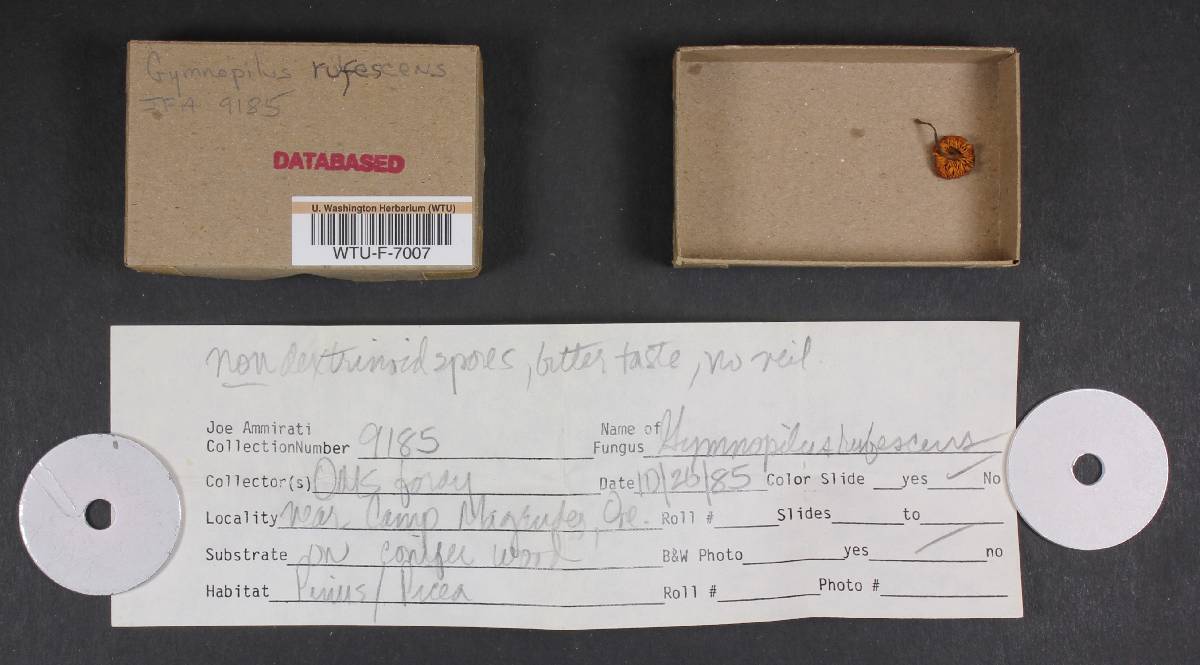 Gymnopilus rufescens
JFA 9185
DATABASED
U. Washington Herbarium (WTU)
WTU-F-7007
non dextrinoid spores, bitter taste, no veil.
Joe Ammirati
CollectionNumber 9185
Name of
Fungus Gymnopilus rufescens
Collector(s) OMS foray
Date 10/26/85 Color Slide yes No
Locality near Camp Magruder, Ore. Roll # Slides to
Substrate on conifer wood B&W Photo yes no
Habitat Pinus/Picea Roll # Photo #